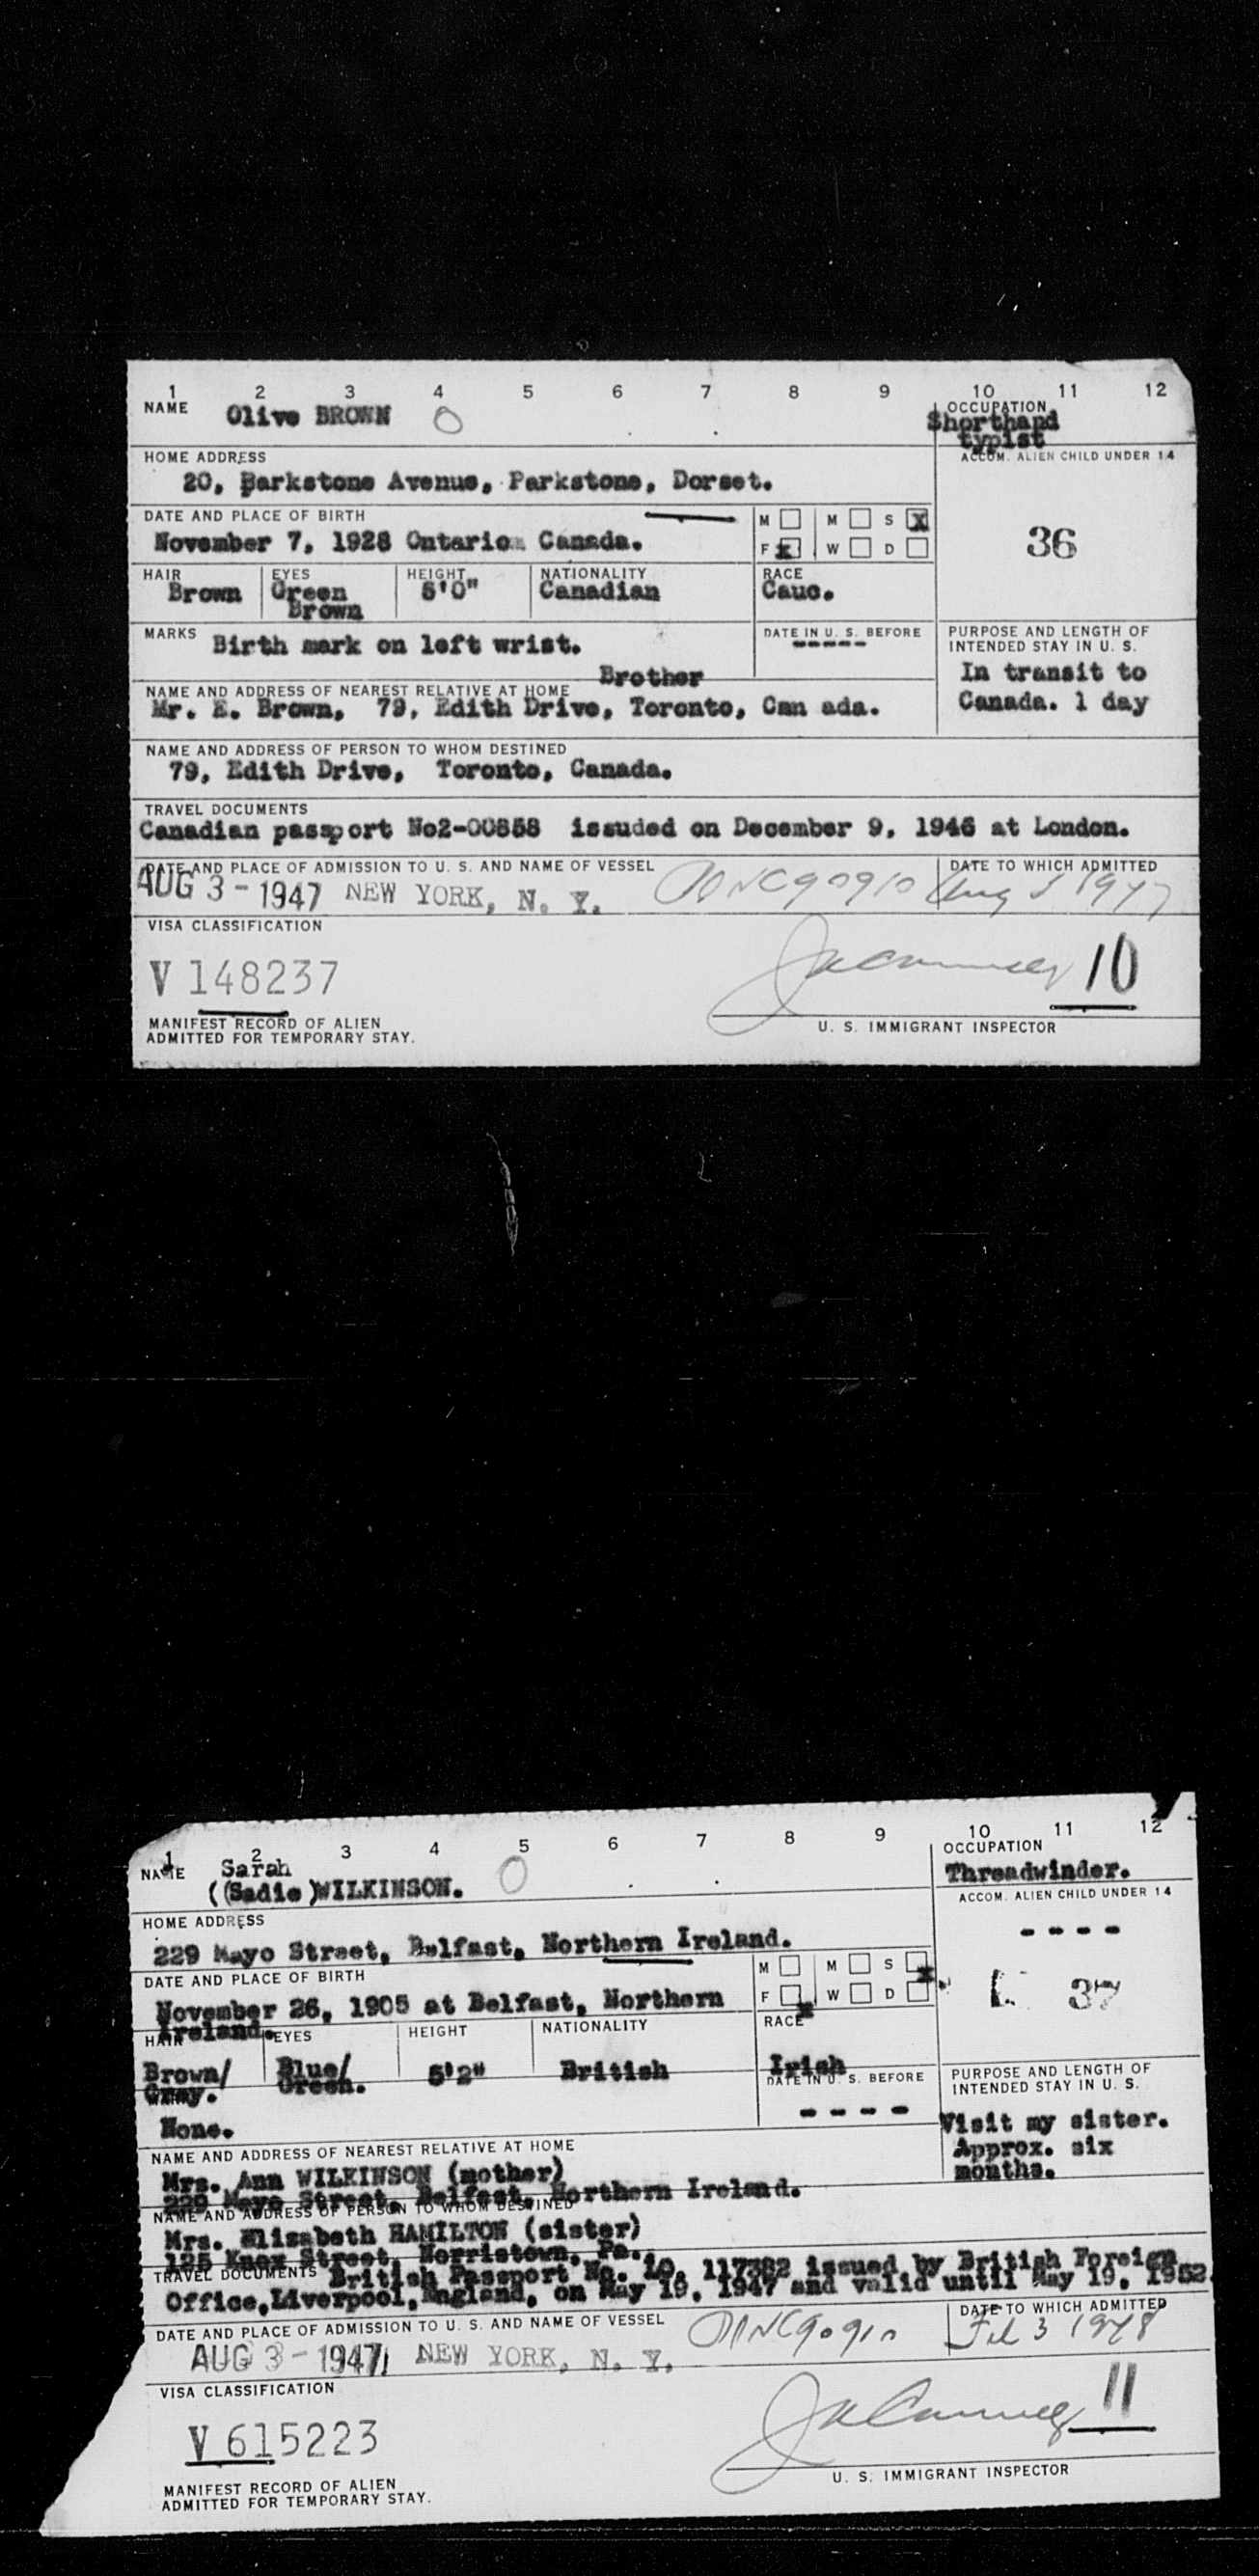 1 2 3 4 5 6 7 8 9 10 11 12
NAME Olive BROWN O
OCCUPATION
Shorthand
typist
HOME ADDRESS
20, Barkstone Avenue, Parkstone, Dorset.
ACCOM. ALIEN CHILD UNDER 14
36
DATE AND PLACE OF BIRTH
November 7, 1928 Ontario Canada.
M M S X
F X W D
HAIR EYES HEIGHT NATIONALITY RACE
Brown Green 5'0" Canadian Cauc.
Brown
MARKS Birth mark on left wrist.
DATE IN U. S. BEFORE
-----
PURPOSE AND LENGTH OF
INTENDED STAY IN U. S.
In transit to
Canada. 1 day
Brother
NAME AND ADDRESS OF NEAREST RELATIVE AT HOME
Mr. E. Brown, 79, Edith Drive, Toronto, Can ada.
NAME AND ADDRESS OF PERSON TO WHOM DESTINED
79, Edith Drive, Toronto, Canada.
TRAVEL DOCUMENTS
Canadian passport No2-00858 issuded on December 9, 1946 at London.
DATE AND PLACE OF ADMISSION TO U. S. AND NAME OF VESSEL
DATE TO WHICH ADMITTED
AUG 3 - 1947 NEW YORK, N. Y. Aug 3 1947
VISA CLASSIFICATION
V 148237
10
MANIFEST RECORD OF ALIEN
ADMITTED FOR TEMPORARY STAY.
U. S. IMMIGRANT INSPECTOR
1 2 3 4 5 6 7 8 9 10 11 12
NAME Sarah
((Sadie)WILKINSON. O
OCCUPATION
Threadwinder.
ACCOM. ALIEN CHILD UNDER 14
----
37
HOME ADDRESS
229 Mayo Street, Belfast, Northern Ireland.
DATE AND PLACE OF BIRTH
November 26, 1905 at Belfast, Northern
Ireland.
M M S X
F X W D
HAIR EYES HEIGHT NATIONALITY RACE
Brown/ Blue/ 5'2" British Irish
Gray. Green.
DATE IN U. S. BEFORE
----
None.
PURPOSE AND LENGTH OF
INTENDED STAY IN U. S.
Visit my sister.
Approx. six
months.
NAME AND ADDRESS OF NEAREST RELATIVE AT HOME
Mrs. Ann WILKINSON (mother)
229 Mayo Street, Belfast, Northern Ireland.
NAME AND ADDRESS OF PERSON TO WHOM DESTINED
Mrs. Elizabeth HAMILTON (sister)
125 Knox Street, Norristown, Pa.
TRAVEL DOCUMENTS British Passport No. 117382 issued by British Foreign
Office,Liverpool,England, on May 19, 1947 and valid until May 19, 1952.
DATE AND PLACE OF ADMISSION TO U. S. AND NAME OF VESSEL
DATE TO WHICH ADMITTED
AUG 3 - 1947 NEW YORK, N. Y. Feb 3 1948
VISA CLASSIFICATION
V 615223
11
MANIFEST RECORD OF ALIEN
ADMITTED FOR TEMPORARY STAY.
U. S. IMMIGRANT INSPECTOR